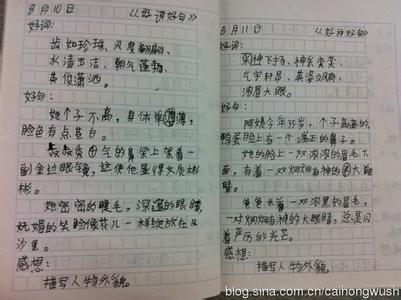 8月10日 《好词好句》
好词:
齿如珍珠、风度翩翩、
水清玉洁、朝气蓬勃、
英俊潇洒。
好句:
她个子不高，身体单薄，
脸色有点苍白。
叔叔秀气的鼻梁上架着一
副金边眼镜，这使他显得文质彬
彬。
她密密的睫毛，深邃的眼睛，
妩媚的笑脸像花儿一样绽放在
沙里。
感想:
描写人物外貌。
8月11日 《好词好句》
好词:
神飞扬、神采奕奕、
气宇轩昂、英姿飒爽、
浓眉大眼。
好句:
阿姨今年35岁，个子高高的，
鸭蛋脸上有一个端正的鼻子。
她的脸上一双浓浓的眉毛下
面，有着一双炯炯有神的大眼
睛。
爸爸长着一双浓黑的眉毛，
一对炯炯有神的大眼睛，总是闪
着严厉的光芒。
感想:
描写人物外貌。
blog.sina.com.cn/caihongwush